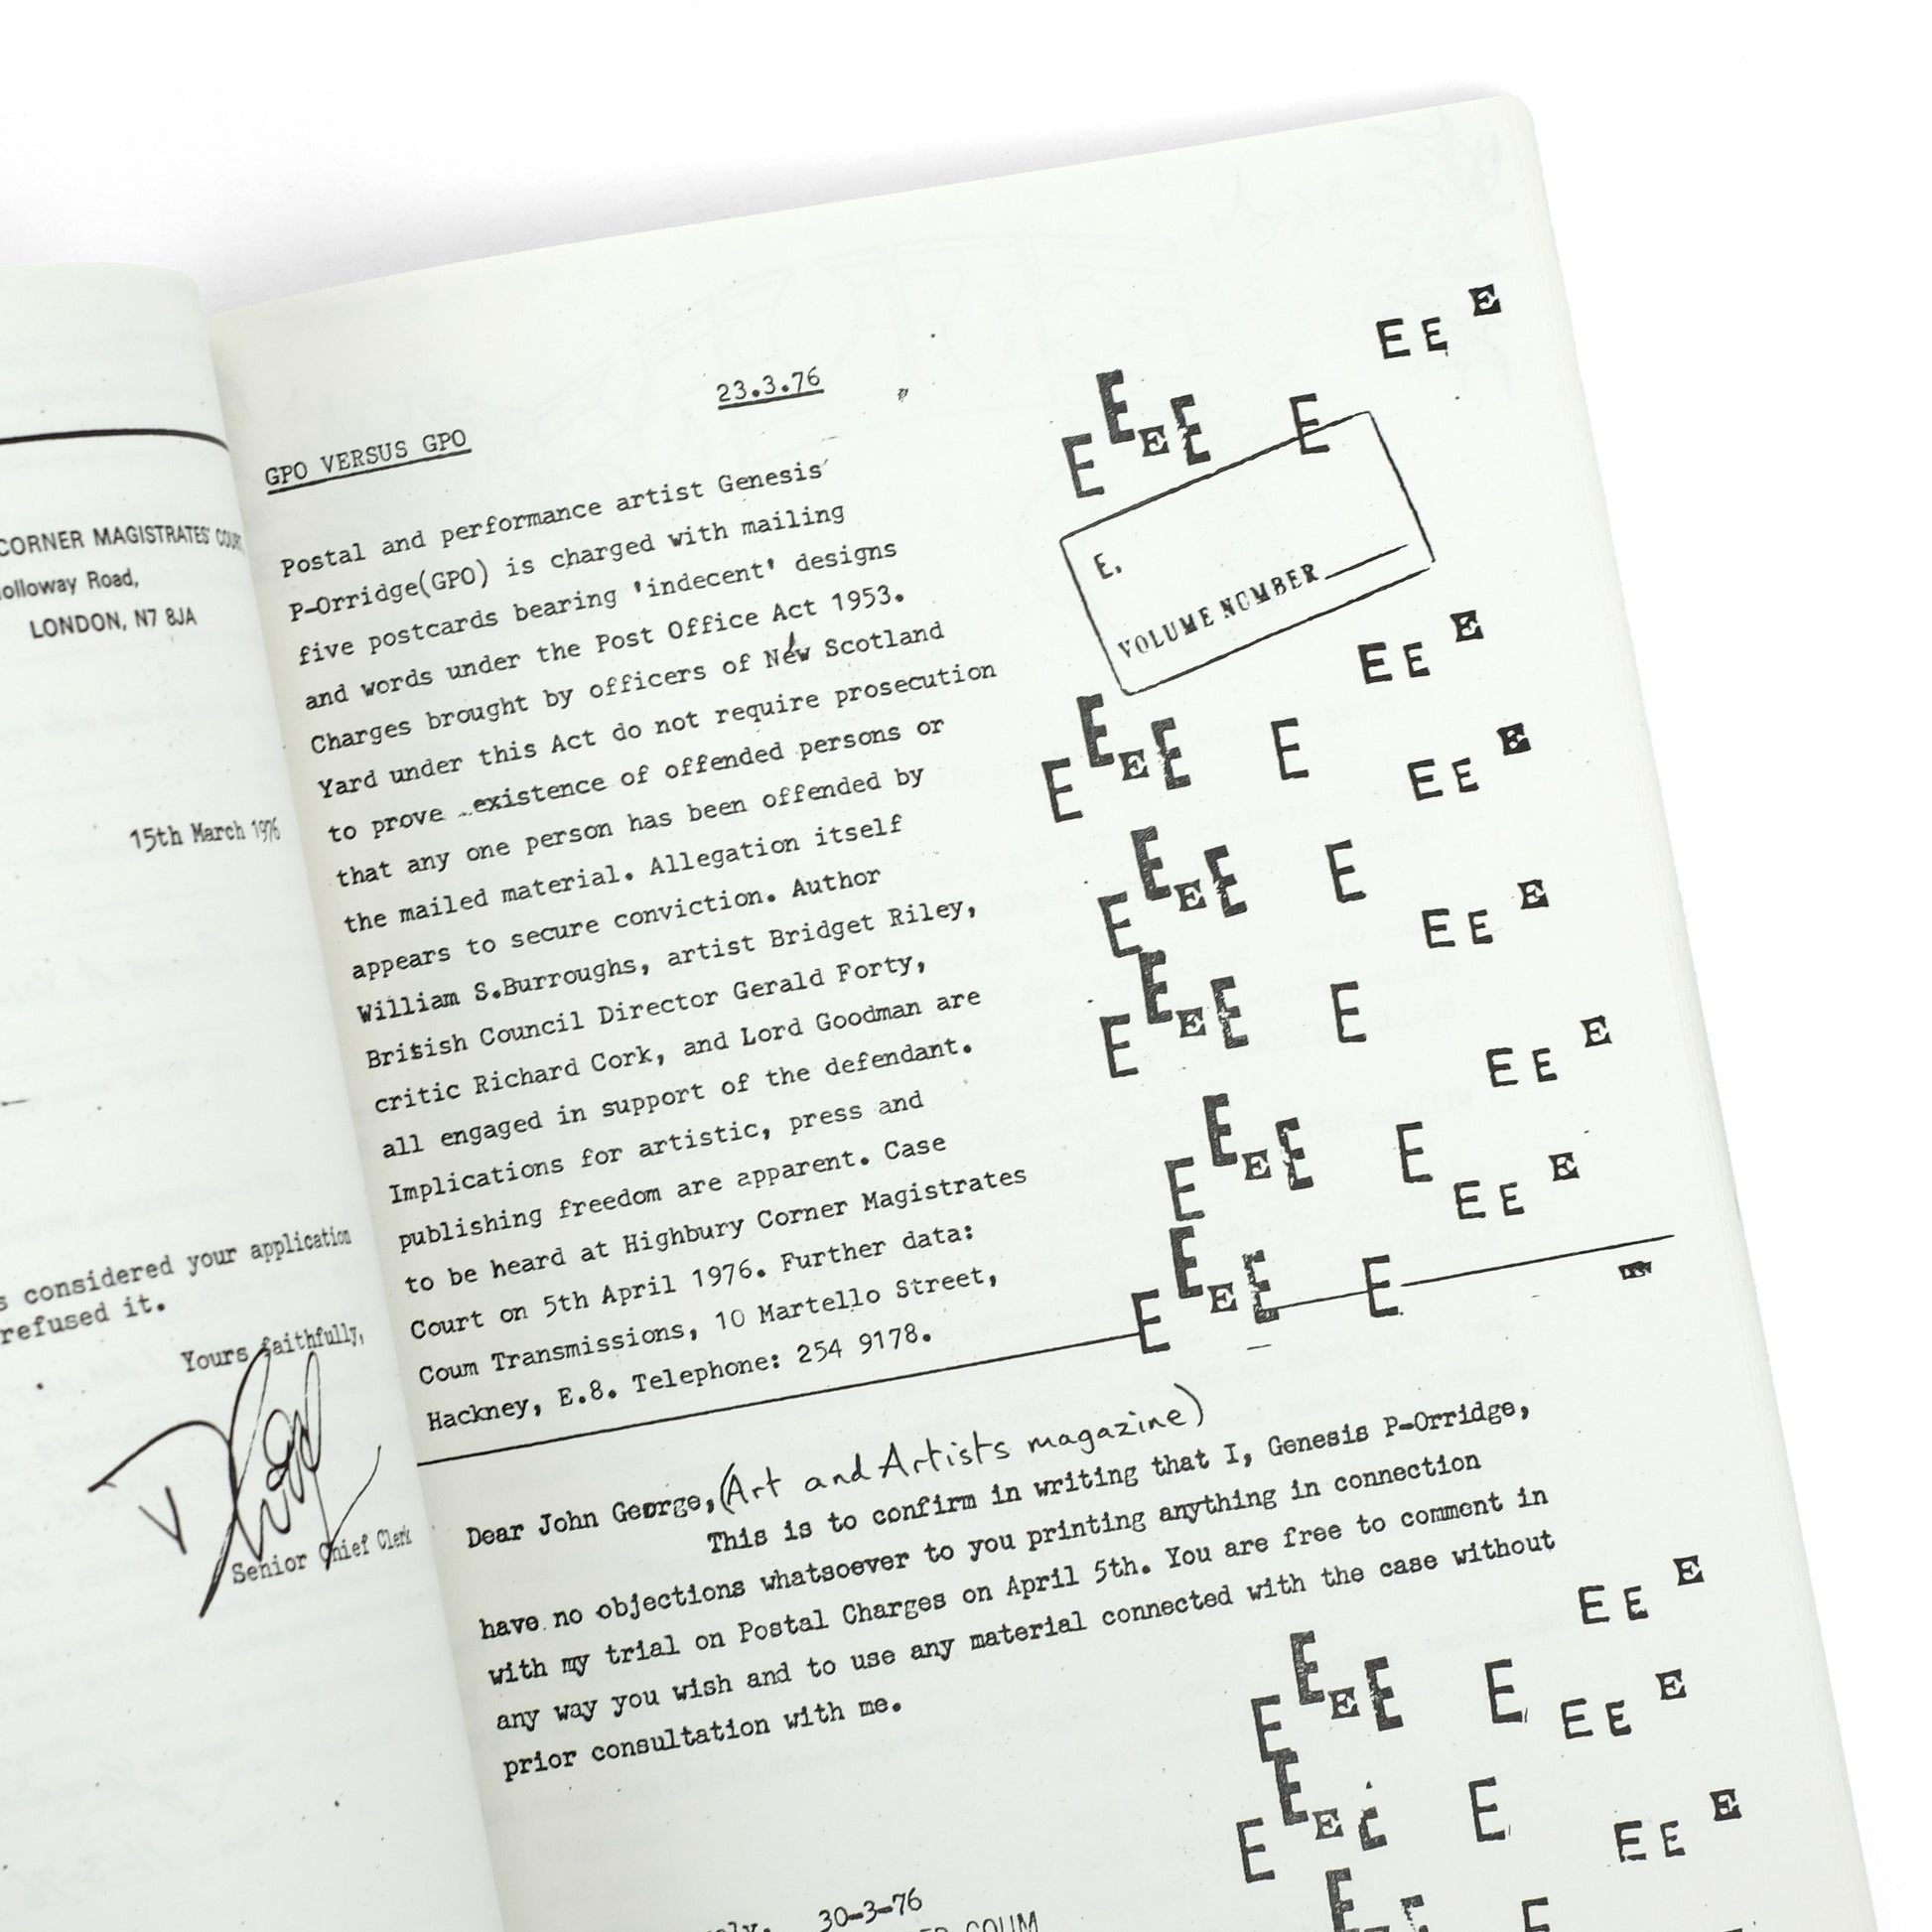 CORNER MAGISTRATES' COURT
olloway Road,
LONDON, N7 8JA
15th March 1976
s considered your application
refused it.
Yours faithfully,
Senior Chief Clerk
23.3.76
GPO VERSUS GPO
Postal and performance artist Genesis
P-Orridge(GPO) is charged with mailing
five postcards bearing 'indecent' designs
and words under the Post Office Act 1953.
Charges brought by officers of New Scotland
Yard under this Act do not require prosecution
to prove existence of offended persons or
that any one person has been offended by
the mailed material. Allegation itself
appears to secure conviction. Author
William S.Burroughs, artist Bridget Riley,
British Council Director Gerald Forty,
critic Richard Cork, and Lord Goodman are
all engaged in support of the defendant.
Implications for artistic, press and
publishing freedom are apparent. Case
to be heard at Highbury Corner Magistrates
Court on 5th April 1976. Further data:
Coum Transmissions, 10 Martello Street,
Hackney, E.8. Telephone: 254 9178.
E E E
E E E E E
E.
VOLUME NUMBER
E E E
E E E E E
E E E
E E E E E
E E E
E E E E E
E E E
E E E E E
E E E
E E E E E
Dear John George, (Art and Artists magazine)
This is to confirm in writing that I, Genesis P-Orridge,
have no objections whatsoever to you printing anything in connection
with my trial on Postal Charges on April 5th. You are free to comment in
any way you wish and to use any material connected with the case without
prior consultation with me.
E E E
E E E E E
E E E
E E E E E
E E E
E E E
30-3-76
COUM